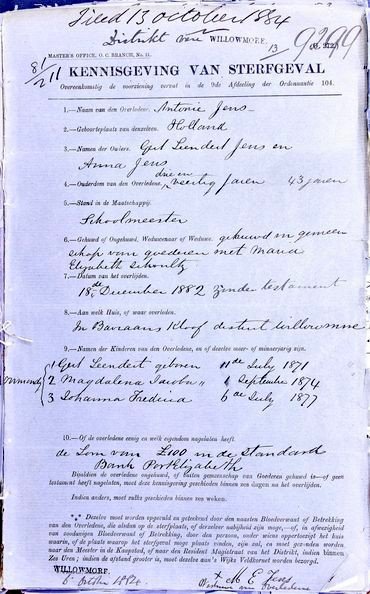 Filed 13 October 1884
Distrikt van WILLOWMORE.
13
9299
8/2 11
MASTER'S OFFICE, O. C. BRANCH, No. 11.
KENNISGEVING VAN STERFGEVAL
Overeenkomstig de voorziening vervat in de 9de Afdeeling der Ordonnantie 104.
1.—Naam van den Overledene. Antonie Jens
2.—Geboorteplaats van denzelven. Holland
3.—Namen der Ouders. Gert Leendert Jens en
Anna Jens
4.—Ouderdom van den Overledene, drie en veertig Jaren 43 jaren
5.—Stand in de Maatschappij.
Schoolmeester
6.—Gehuwd of Ongehuwd, Weduwenaar of Weduwe. gehuwd in gemeen
schap van goederen met Maria
Elizabeth Schoultz
7.—Datum van het overlijden.
18de December 1882 zonder testament
8.—Aan welk Huis, of waar overleden.
In Baviaans Kloof district Willowmore
9.—Namen der Kinderen van den Overledene, en of dezelve meer- of minderjarig zijn.
1 Gert Leendert geboren 11de July 1871
2 Magdalena Jacoba " 1 September 1874
3 Johanna Fredrica 6de July 1877
10.—Of de overledene eenig en welk eigendom nagelaten heeft.
de Som van £100 in de Standard
Bank Port Elizabeth
Bijaldien de overledene ongehuwd, of buiten gemeenschap van Goederen gehuwd is—of geen
testament heeft nagelaten, moet deze kennisgeving geschieden binnen zes dagen na het overlijden.
Indien anders, moet zulks geschieden binnen zes weken.
*** Dezelve moet worden opgevuld en geteekend door den naasten Bloedverwant of Betrekking
van den Overledene, die alsdan op de sterfplaats, of derzelver nabijheid zijn mogt,—of, in afwezigheid
van zoodanigen Bloedverwant of Betrekking, door den persoon, onder wiens oppertoezigt het huis
waarin, of de plaats waarop het sterfgeval mogt plaats vinden, zijn zal, en moet gezonden worden
aan den Meester in de Kaapstad, of aan den Resident Magistraat van het Distrikt, indien binnen
Zes Uren; indien de afstand grooter is, moet deze aan's Wijks Veldkornet worden bezorgd.
WILLOWMORE.
6 October 1884.
M E Jens
Weduwe van Overledene